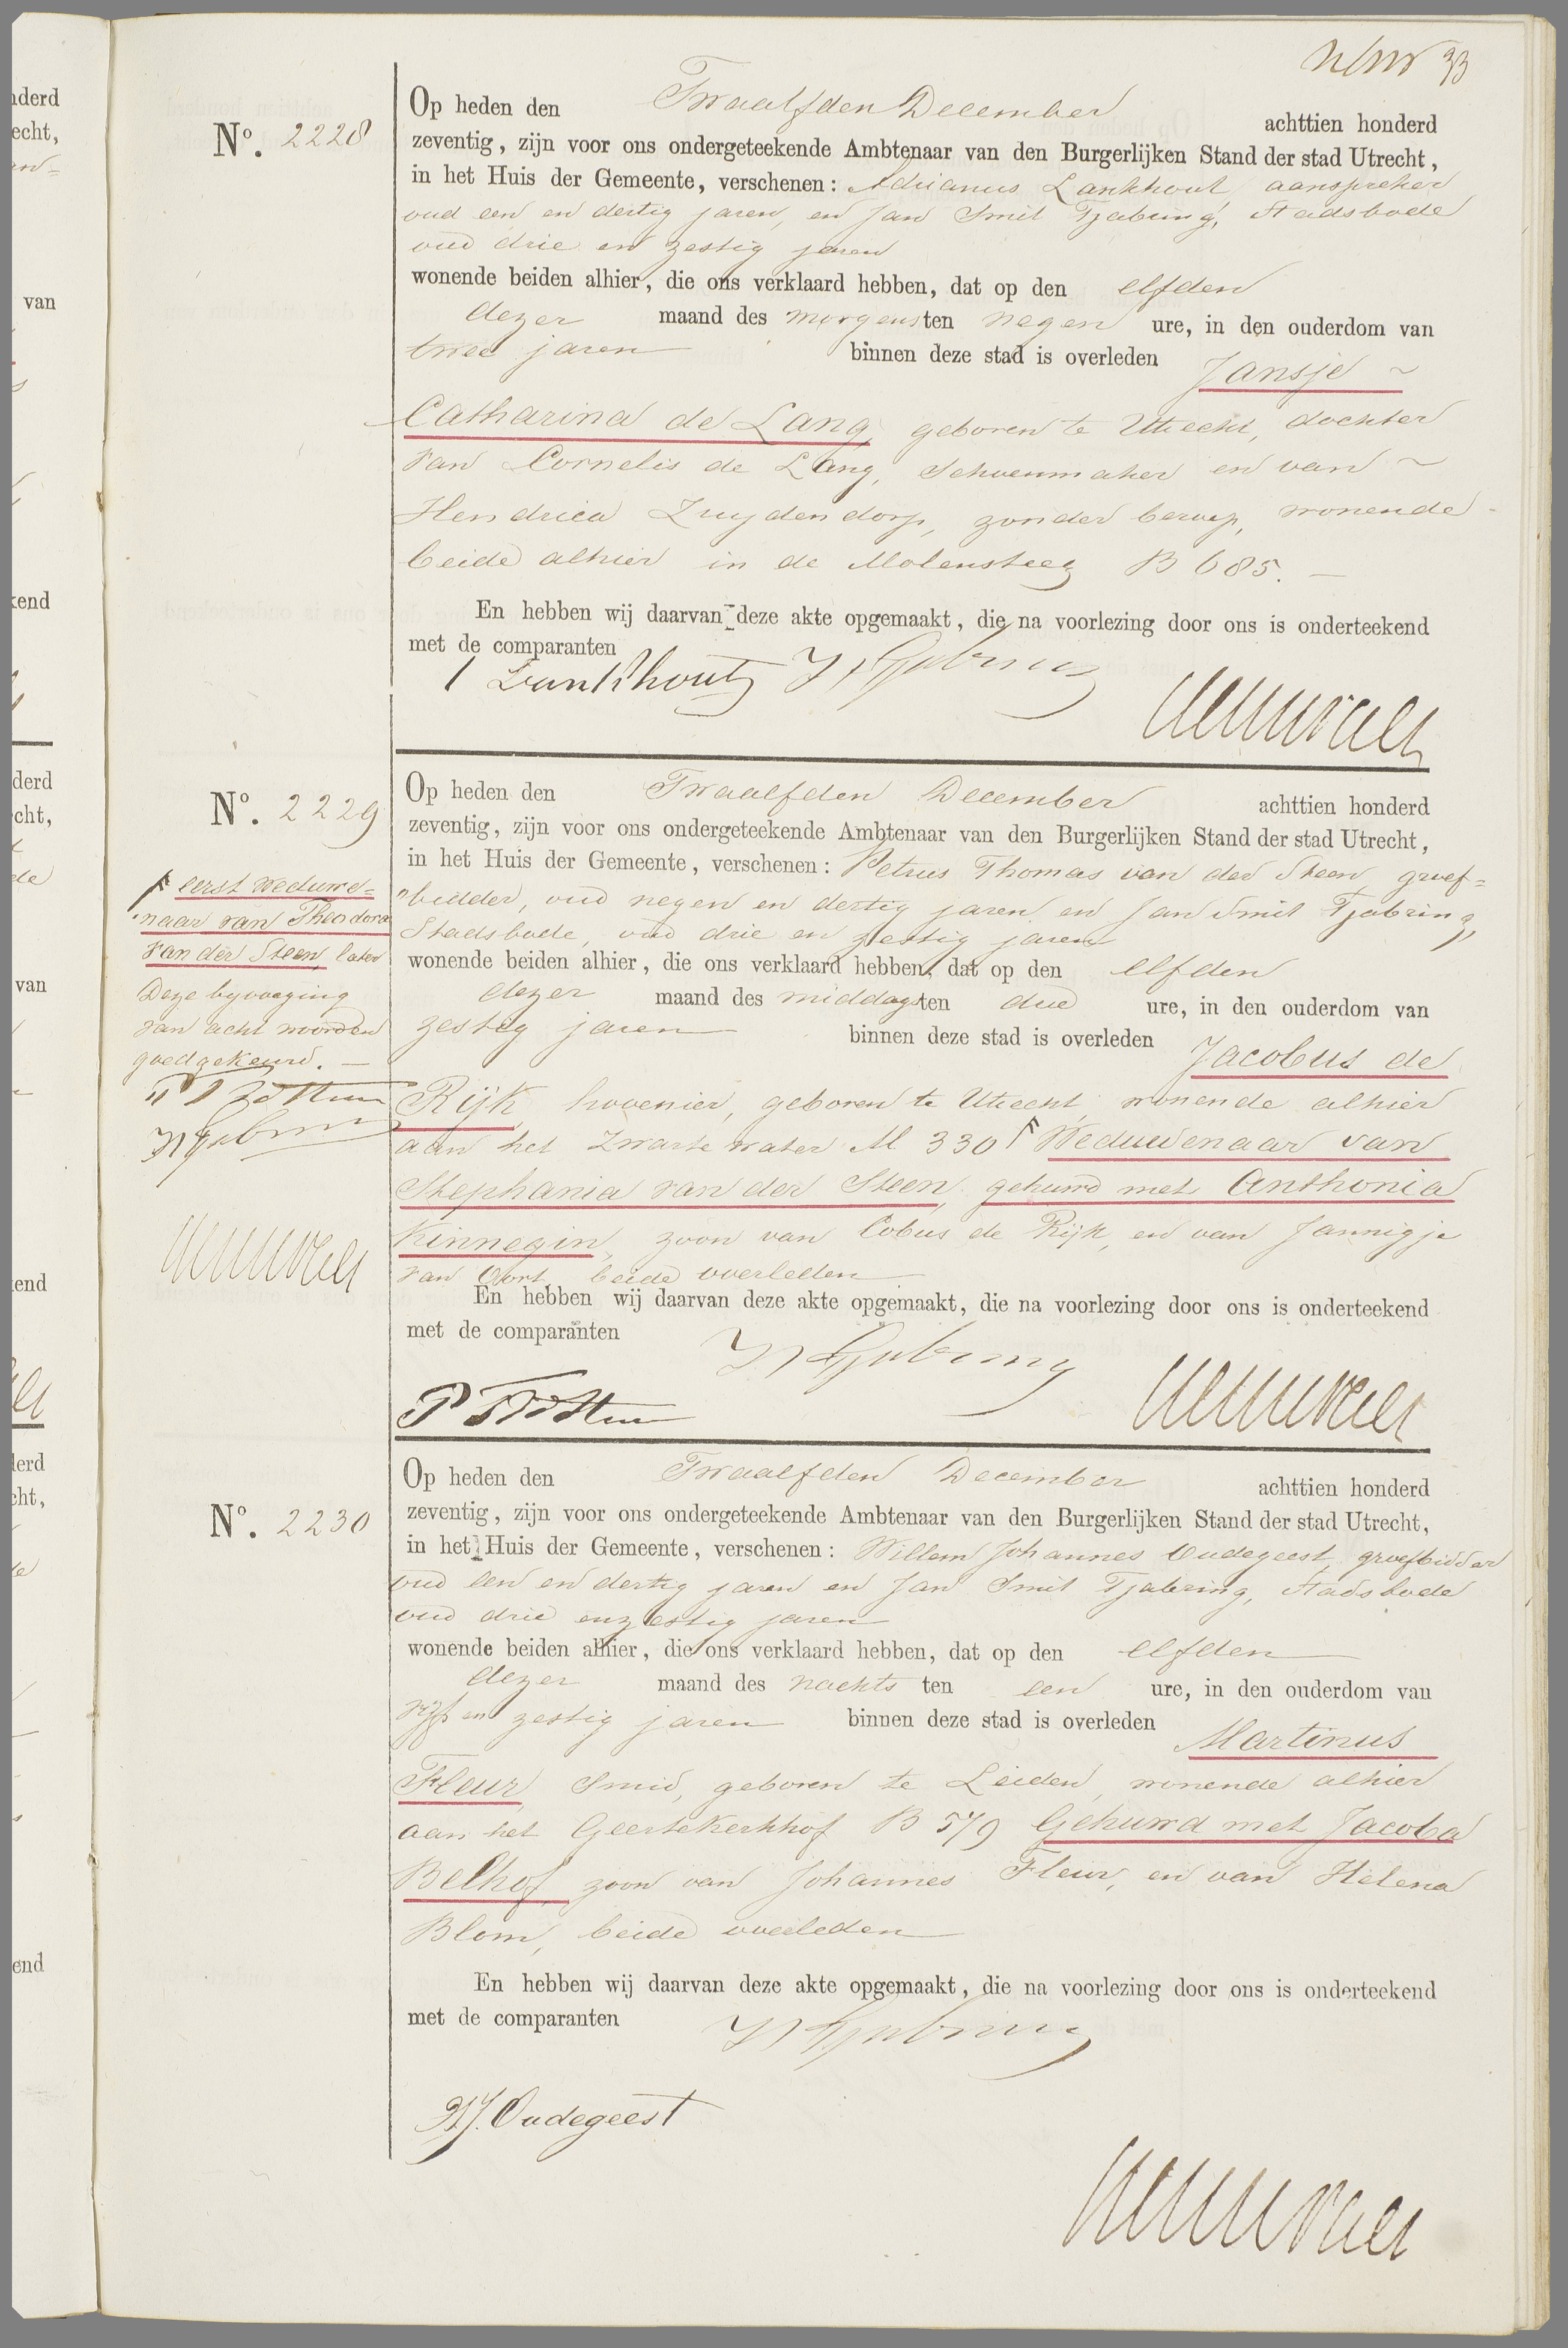 33
Nº. 2228
Op heden den Twaalfden December achttien honderd
zeventig, zijn voor ons ondergeteekende Ambtenaar van den Burgerlijken Stand der stad Utrecht,
in het Huis der Gemeente, verschenen: Adrianus Lankhout aanspreker
oud een en dertig jaren, en Jan Smit Tjabring, Stadsbode
oud drie en zestig jaren
wonende beiden alhier, die ons verklaard hebben, dat op den elfden
dezer maand des morgens ten negen ure, in den ouderdom van
twee jaren binnen deze stad is overleden Jansje ~
Catharina de Lang, geboren te Utrecht, dochter
van Cornelis de Lang, Schoenmaker en van ~
Hendrica Zuydendorp, zonder beroep, wonende
beide alhier in de Molensteeg B 685. —
En hebben wij daarvan deze akte opgemaakt, die na voorlezing door ons is onderteekend
met de comparanten
Lankhout JSTjabring
Nº. 2229
Op heden den Twaalfden December achttien honderd
zeventig, zijn voor ons ondergeteekende Ambtenaar van den Burgerlijken Stand der stad Utrecht,
in het Huis der Gemeente, verschenen: Petrus Thomas van der Steen, groef=
bidder, oud negen en dertig jaren, en Jan Smit Tjabring,
Stadsbode, oud drie en zestig jaren
wonende beiden alhier, die ons verklaard hebben, dat op den elfden
dezer maand des middags ten drie ure, in den ouderdom van
zestig jaren binnen deze stad is overleden Jacobus de
Rijk, hovenier, geboren te Utrecht, wonende alhier
aan het Zwarte water M 330 Ⲅ Weduwenaar van
Stephania van der Steen, gehuwd met Anthonia
Kinnegin, zoon van Cobus de Rijk, en van Jannigje
van Oort, beide overleden
En hebben wij daarvan deze akte opgemaakt, die na voorlezing door ons is onderteekend
met de comparanten
JSTjabring
P T vd Steen
Ⲅ eerst Weduwe=
naar van Theodora
van der Steen, later
Deze byvoeging
van acht woorden
goedgekeurd. —
P T vd Steen
JSTjabring
Nº. 2230
Op heden den Twaalfden December achttien honderd
zeventig, zijn voor ons ondergeteekende Ambtenaar van den Burgerlijken Stand der stad Utrecht,
in het Huis der Gemeente, verschenen: Willem Johannes Oudegeest, groefbidder
oud een en dertig jaren en Jan Smit Tjabring, Stadsbode
oud drie en zestig jaren
wonende beiden alhier, die ons verklaard hebben, dat op den elfden
dezer maand des nachts ten een ure, in den ouderdom van
vijf en zestig jaren binnen deze stad is overleden Martinus
Fleur, Smid, geboren te Leiden, wonende alhier
aan het Geertekerkhof B 579 Gehuwd met Jacoba
Belhof, zoon van Johannes Fleur, en van Helena
Blom, beide overleden
En hebben wij daarvan deze akte opgemaakt, die na voorlezing door ons is onderteekend
met de comparanten
JSTjabring
WJ. Oudegeest